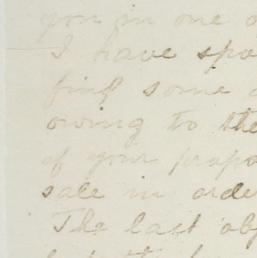 you in one
I have spo
find some
owing to the
of your propo
sale in orde
The last obj